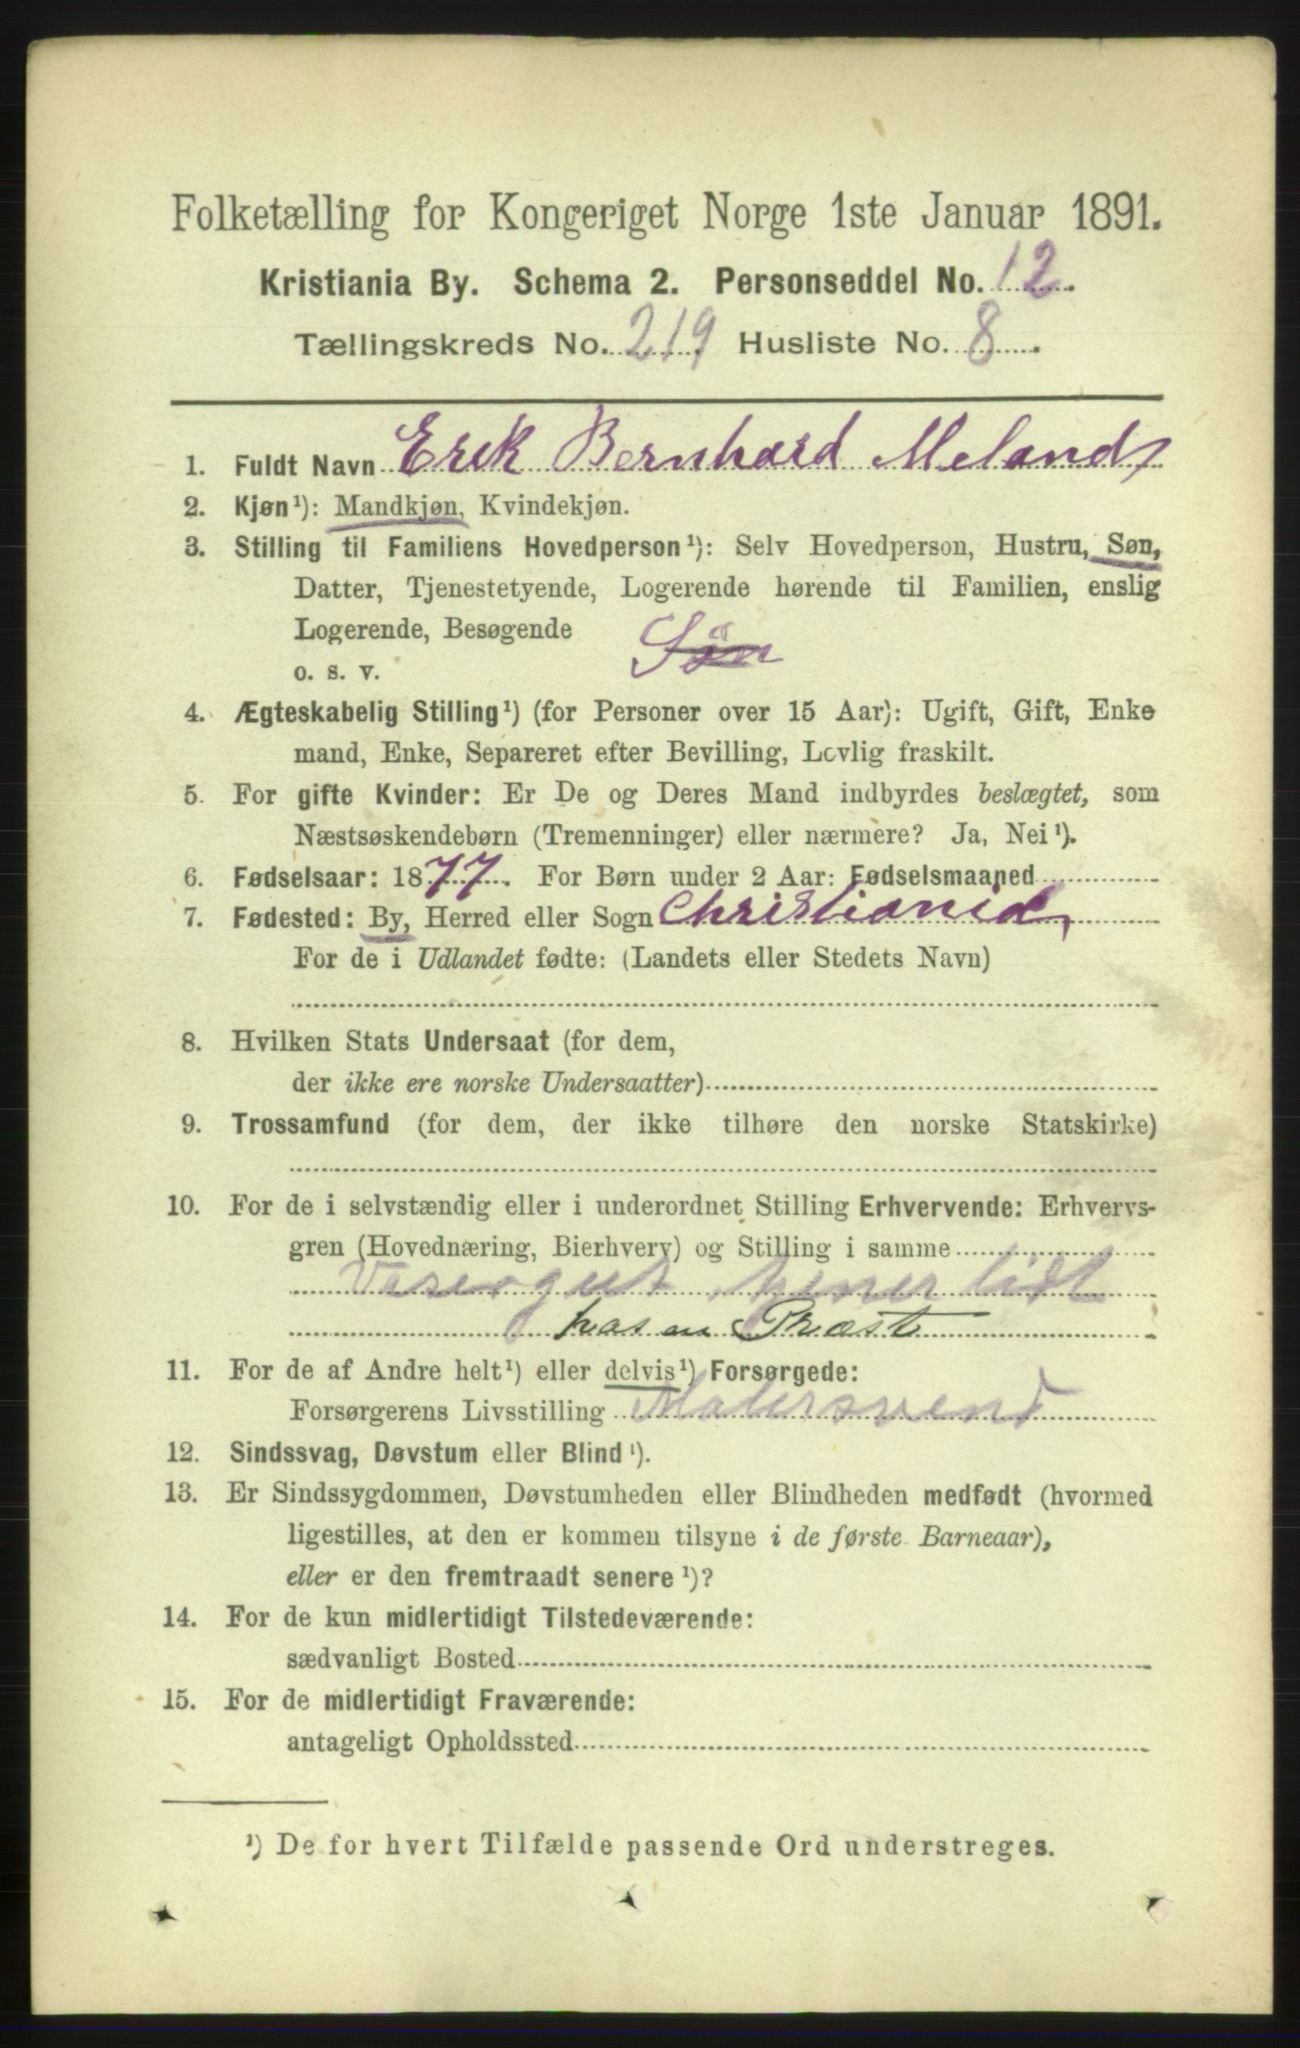 Folketælling for Kongeriget Norge 1ste Januar 1891.
Kristiania By. Schema 2. Personseddel No. 12.
Tællingskreds No. 219. Husliste No. 8.
1. Fuldt Navn Erik Bernhard Meland
2. Kjøn¹): Mandkjøn, Kvindekjøn.
3. Stilling til Familiens Hovedperson¹): Selv Hovedperson, Hustru, Søn,
Datter, Tjenestetyende, Logerende hørende til Familien, enslig
Logerende, Besøgende
o. s. v. Søn
4. Ægteskabelig Stilling¹) (for Personer over 15 Aar): Ugift, Gift, Enke
mand, Enke, Separeret efter Bevilling, Lovlig fraskilt.
5. For gifte Kvinder: Er De og Deres Mand indbyrdes beslægtet, som
Næstsøskendebørn (Tremenninger) eller nærmere? Ja, Nei¹).
6. Fødselsaar: 1877. For Børn under 2 Aar: Fødselsmaaned
7. Fødested: By, Herred eller Sogn Christiania,
For de i Udlandet fødte: (Landets eller Stedets Navn)
8. Hvilken Stats Undersaat (for dem,
der ikke ere norske Undersaatter)
9. Trossamfund (for dem, der ikke tilhøre den norske Statskirke)
10. For de i selvstændig eller i underordnet Stilling Erhvervende: Erhvervs-
gren (Hovednæring, Bierhverv) og Stilling i samme
Viserg​ut tjener lidt
hos en Præst
11. For de af Andre helt¹) eller delvis¹) Forsørgede:
Forsørgerens Livsstilling Malersvend
12. Sindssvag, Døvstum eller Blind¹).
13. Er Sindssygdommen, Døvstumheden eller Blindheden medfødt (hvormed
ligestilles, at den er kommen tilsyne i de første Barneaar),
eller er den fremtraadt senere¹)?
14. For de kun midlertidigt Tilstedeværende:
sædvanligt Bosted
15. For de midlertidigt Fraværende:
antageligt Opholdssted
¹) De for hvert Tilfælde passende Ord understreges.